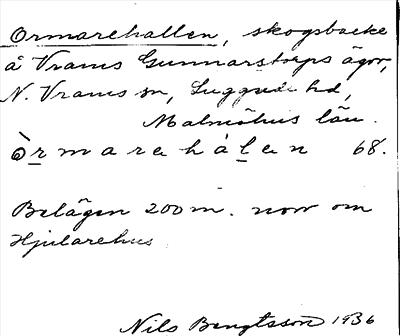 Ormarehallen, skogsbacke
å Vrams Gunnarstorps ägor,
N. Vrams sn, Luggude hd,
Malmöhus län.
Òrmarehálen 68.
Belägen 200 m. norr om
Hjularehus
Nils Bengtsson 1936